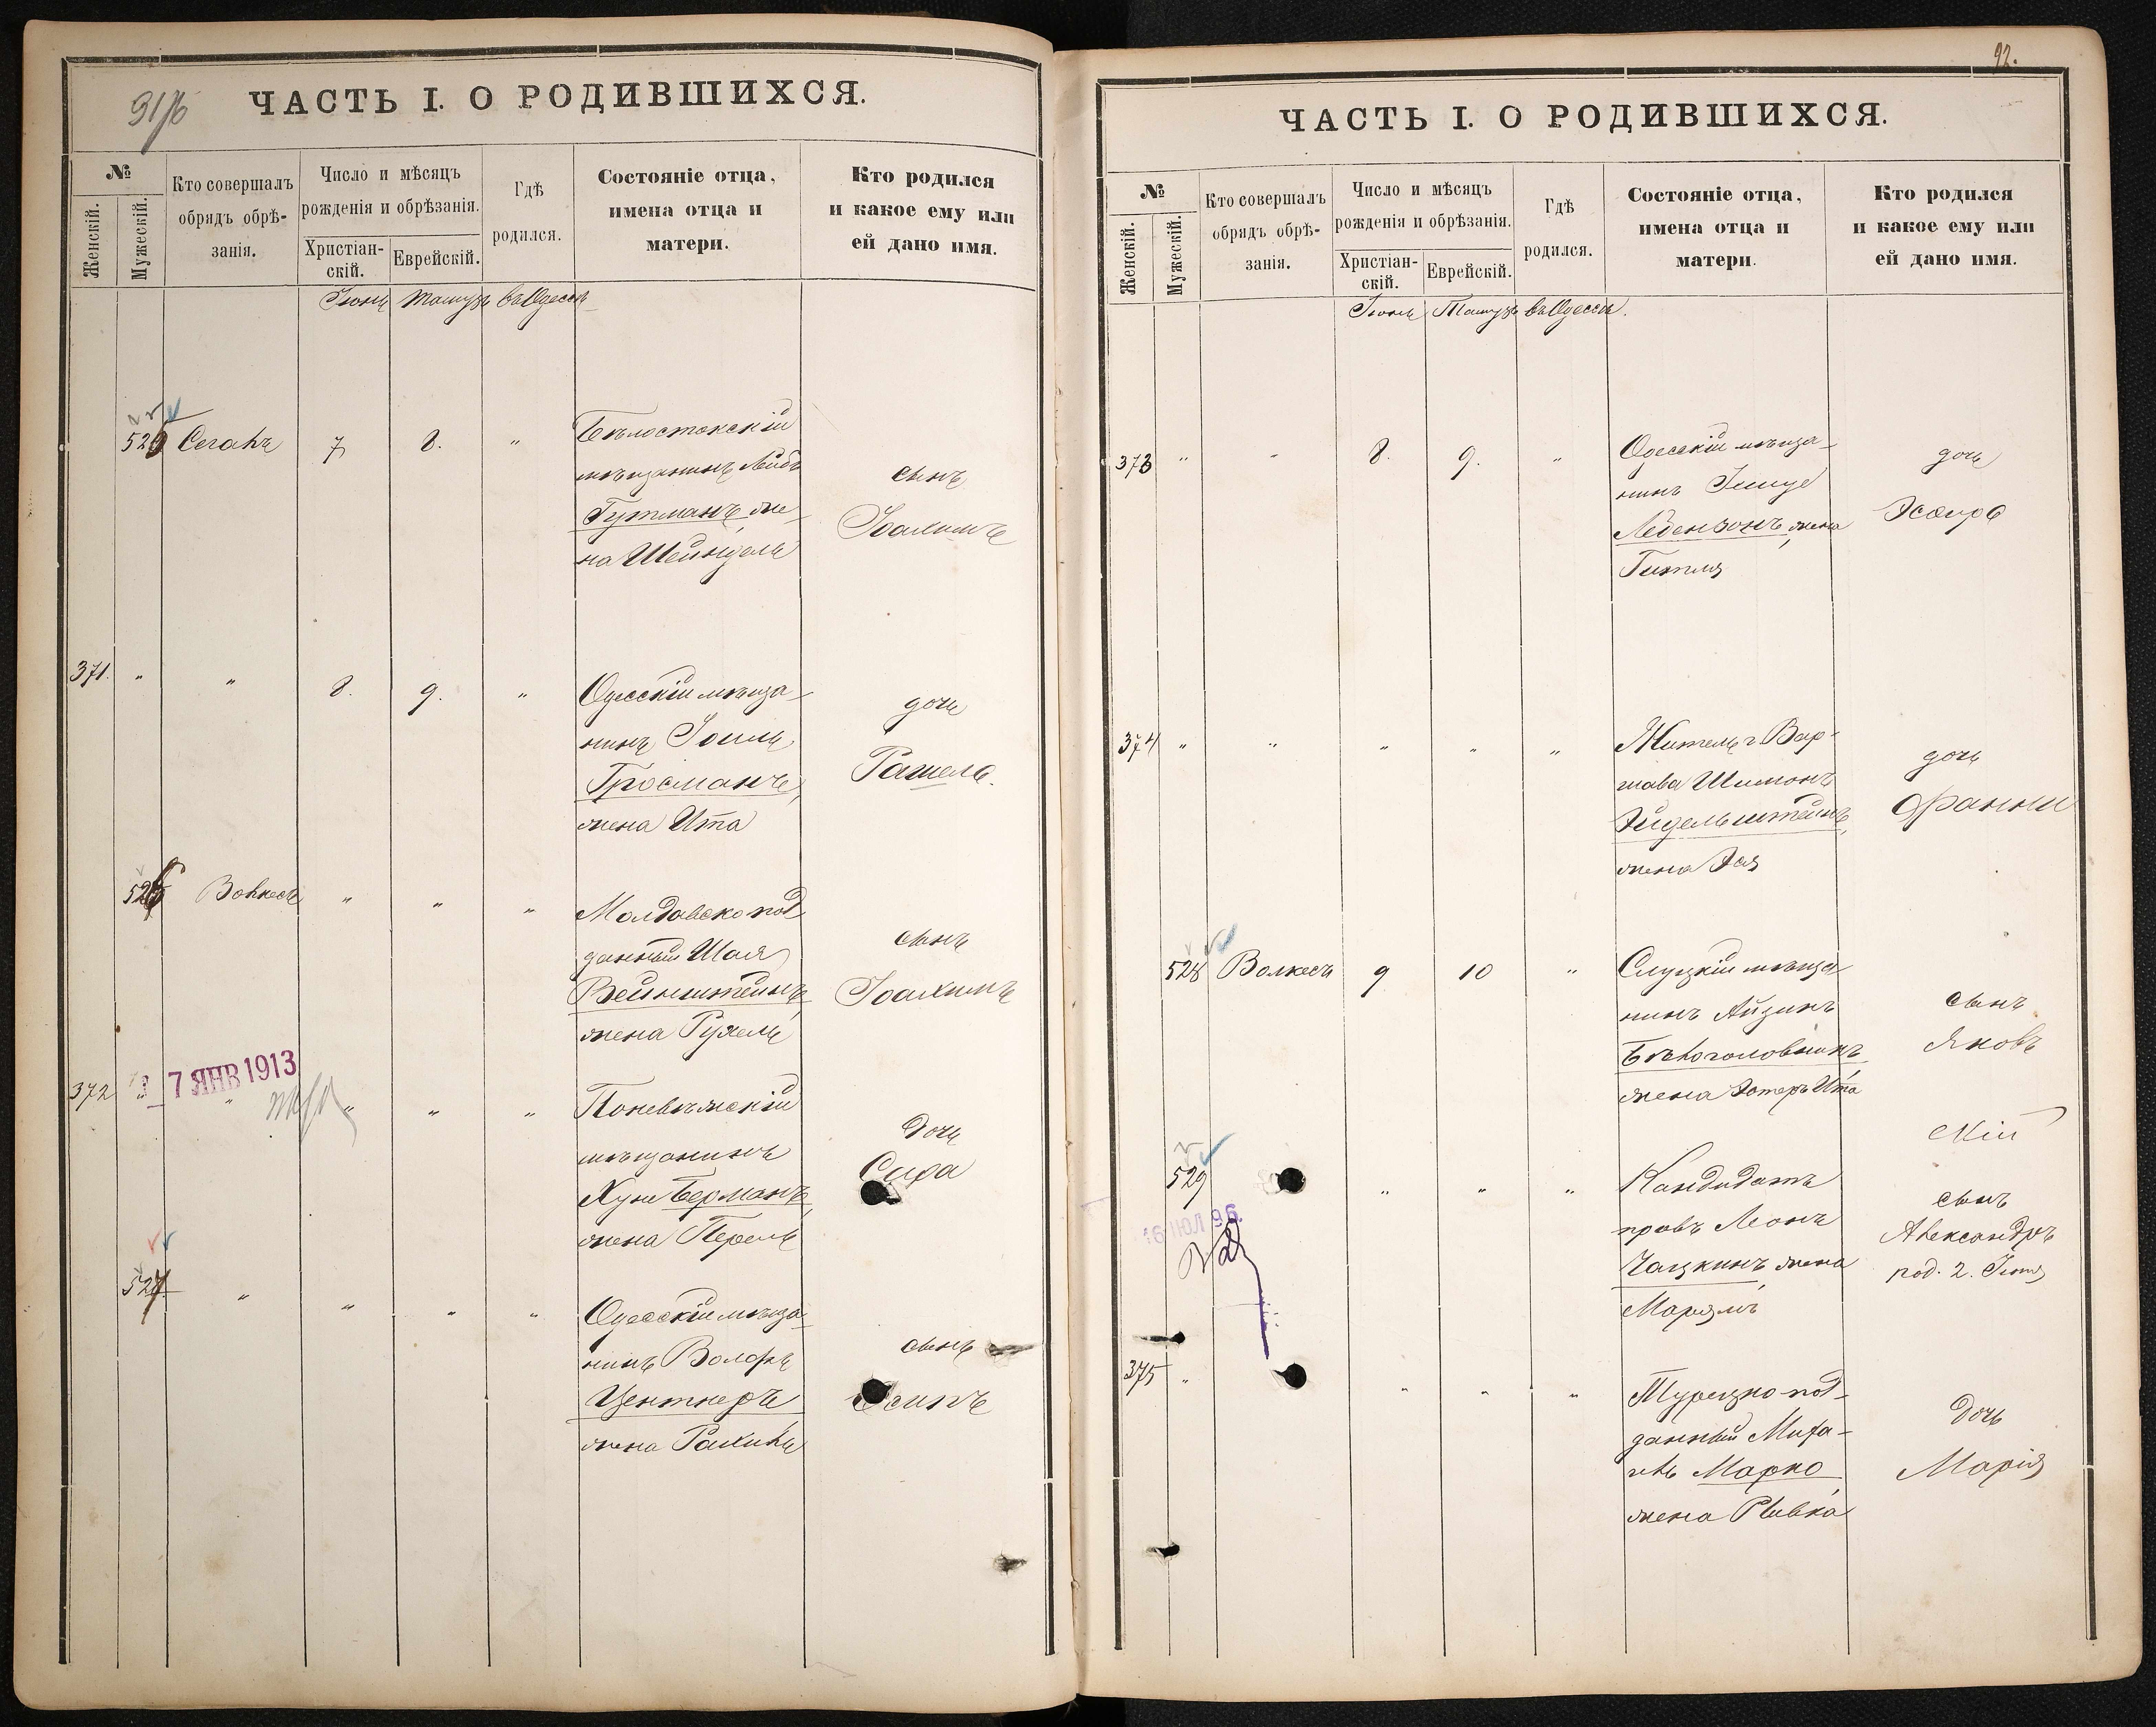 91/б
ЧАСТЬ I. О РОДИВШИХСЯ.
№
Женскій.
Мужескій.
Кто совершалъ
обрядъ обрѣ-
занія.
Число и мѣсяцъ
рожденія и обрѣзанія.
Христіан-
скій.
Еврейскій.
Гдѣ
родился.
Состояніе отца,
имена отца и
матери.
Кто родился
и какое ему или
ей дано имя.
Іюнь Тамузъ въ Одессѣ
525 Сегалъ 7 8. "
Бѣлостокскій
мѣщанинъ Лейбъ
Гутманъ, же-
на Шейндель
сынъ
Іоахимъ
371. " " 8. 9. "
Одесскій мѣща-
нинъ Іоиль
Гросманъ,
жена Ита
дочь
Рашель.
526 Волкесъ " " "
Молдавско под-
данный Шая
Вейнштейнъ,
жена Рухель
сынъ
Іоахимъ
7 ЯНВ 1913
372 " " " " "
Поневѣжскій
мѣщанинъ
Хуне Берманъ,
жена Перель
дочь
Сура
527 " " " "
Одесскій мѣща-
нинъ Волфъ
Центнеръ
жена Рахиль
сынъ
Осипъ
92.
ЧАСТЬ I. О РОДИВШИХСЯ.
№
Женскій.
Мужескій.
Кто совершалъ
обрядъ обрѣ-
занія.
Число и мѣсяцъ
рожденія и обрѣзанія.
Христіан-
скій.
Еврейскій.
Гдѣ
родился.
Состояніе отца,
имена отца и
матери.
Кто родился
и какое ему или
ей дано имя.
Іюнь Тамузъ въ Одессѣ.
373 " " 8. 9. "
Одесскій мѣща-
нинъ
Лебензонъ, жена
Гитля
дочь
Эсѳирь
374 " " " " "
Житель г Вар-
шава Шимонъ
Эйдельштейнъ,
жена Эя
дочь
Фанни
528 Волкесъ 9 10 "
Слуцкій мѣща-
нинъ Айзикъ
Бѣлоголовкинъ
жена Эстеръ Ита
сынъ
Яковъ
529 " " "
Кандидатъ
правъ Леонъ
Чацкинъ, жена
Маріямъ
сынъ
Александръ
род. 2. Іюня
375 " " " "
Турецко-под-
данный Миха-
ель Марко,
жена Ривка
дочь
Марія